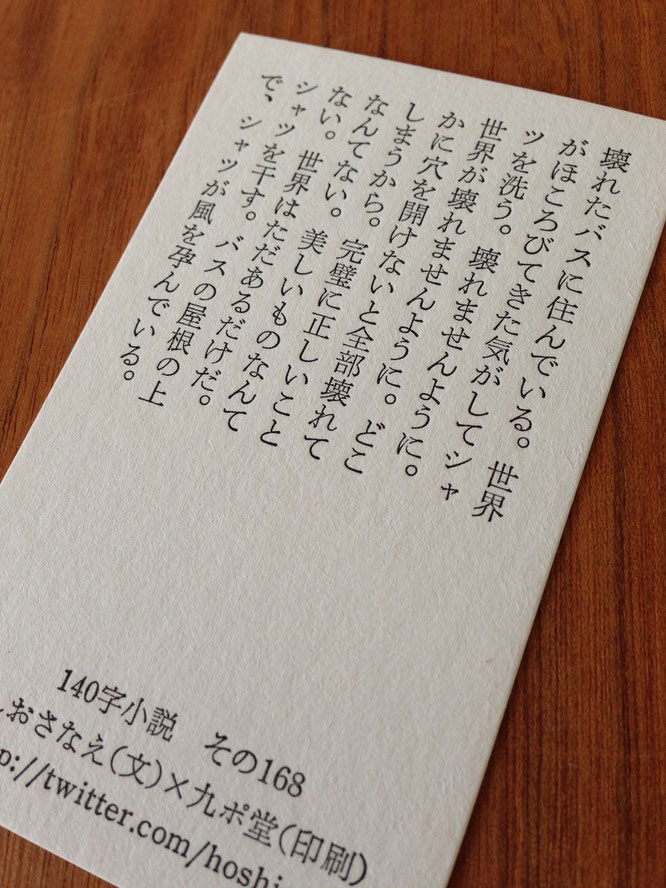 壊れたバスに住んでいる。世界
がほころびてきた気がしてシャ
ツを洗う。壊れませんように。
世界が壊れませんように。どこ
かに穴を開けないと全部壊れて
しまうから。完璧に正しいこと
なんてない。美しいものなんて
ない。世界はただあるだけだ。
シャツを干す。バスの屋根の上
で、シャツが風を孕んでいる。
140字小説　その168
しおさなえ(文)×九ポ堂(印刷)
p://twitter.com/hoshi